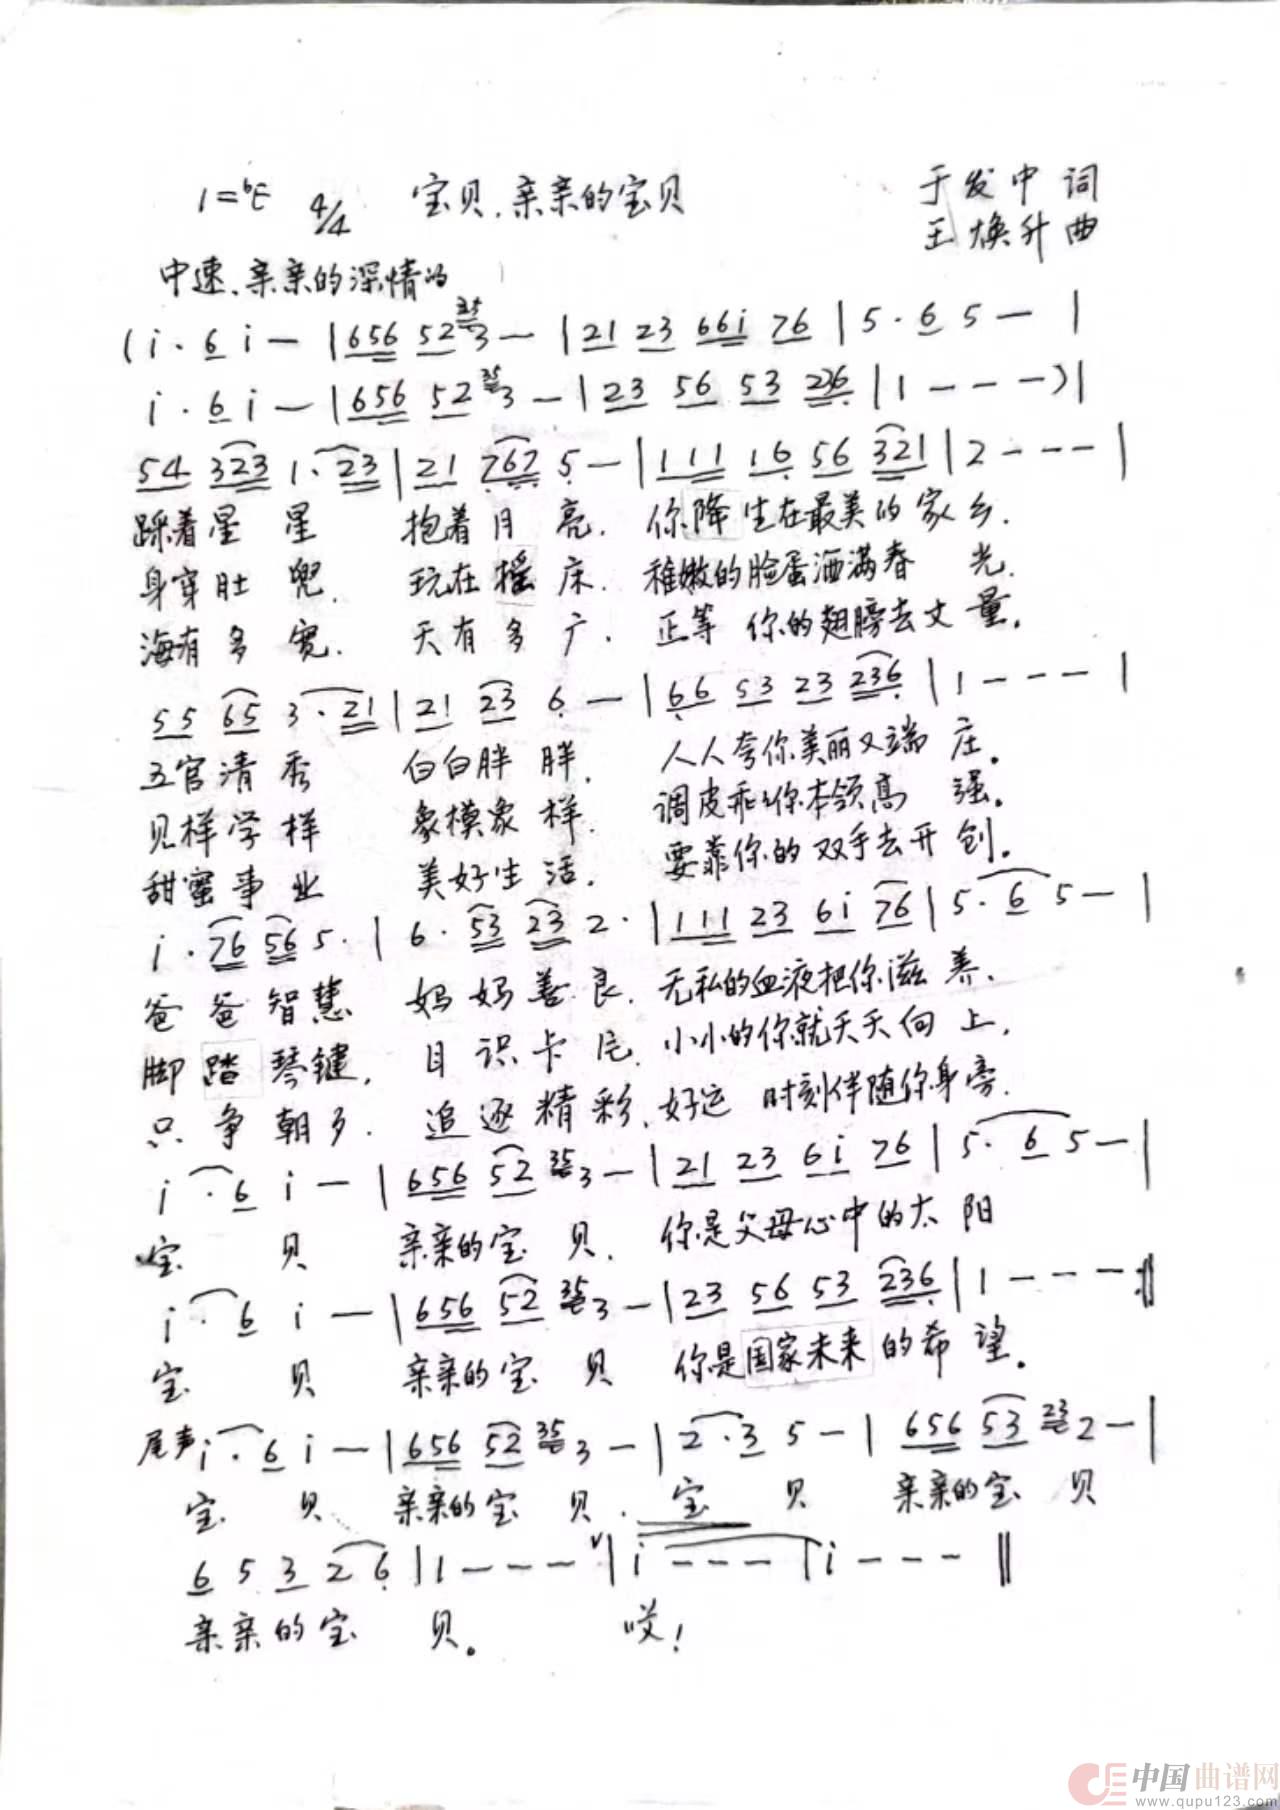 1=♭E 4/4 宝贝,亲亲的宝贝 于发中 词
王焕升 曲
中速、亲亲的深情的
(i·6 i — |656 52 35 3 — |21 23 66i 76 |5·6 5 — |
i·6 i — |656 52 35 3 — |23 56 53 236 |1 - - -)|
54 323 1·23 |21 767 5 — |111 16 56 321 |2 - - - |
踩着星 星 抱着月 亮. 你降生在最美的家乡.
身穿肚 兜. 玩在摇 床. 稚嫩的脸蛋洒满春 光.
海有多 宽. 天有多 广. 正等 你的翅膀去丈 量.
55 65 3·21 |21 23 6 — |66 53 23 236 |1 - - - |
五官清 秀 白白胖 胖. 人人夸你美丽又端 庄.
见样学 样 象模象 样. 调皮乖乖你本领高 强.
甜蜜事 业 美好生 活. 要靠你的双手去开 创.
i·76 56 5· |6·53 23 2· |111 23 6i 76 |5·6 5 — |
爸爸智慧 妈妈善良. 无私的血液把你滋 养.
脚踏琴键. 目识卡片. 小小的你就天天向 上.
只争朝夕. 追逐精彩. 好运 时刻伴随你身旁.
i·6 i — |656 52 35 3 — |21 23 6i 76 |5·6 5 — |
宝 贝 亲亲的宝 贝. 你是父母心中的太 阳
i·6 i — |656 52 35 3 — |23 56 53 236 |1 - - - :‖
宝 贝 亲亲的宝 贝 你是国家未来的希 望.
尾声 i·6 i — |656 52 35 3 — |2·3 5 — |656 53 23 2 — |
宝 贝 亲亲的宝 贝. 宝 贝 亲亲的宝 贝
6 5 3 2 6 |1 - - - ∨|i - - - |i - - - ‖
亲亲的宝 贝。 哎!
中国曲谱网
www.qupu123.com